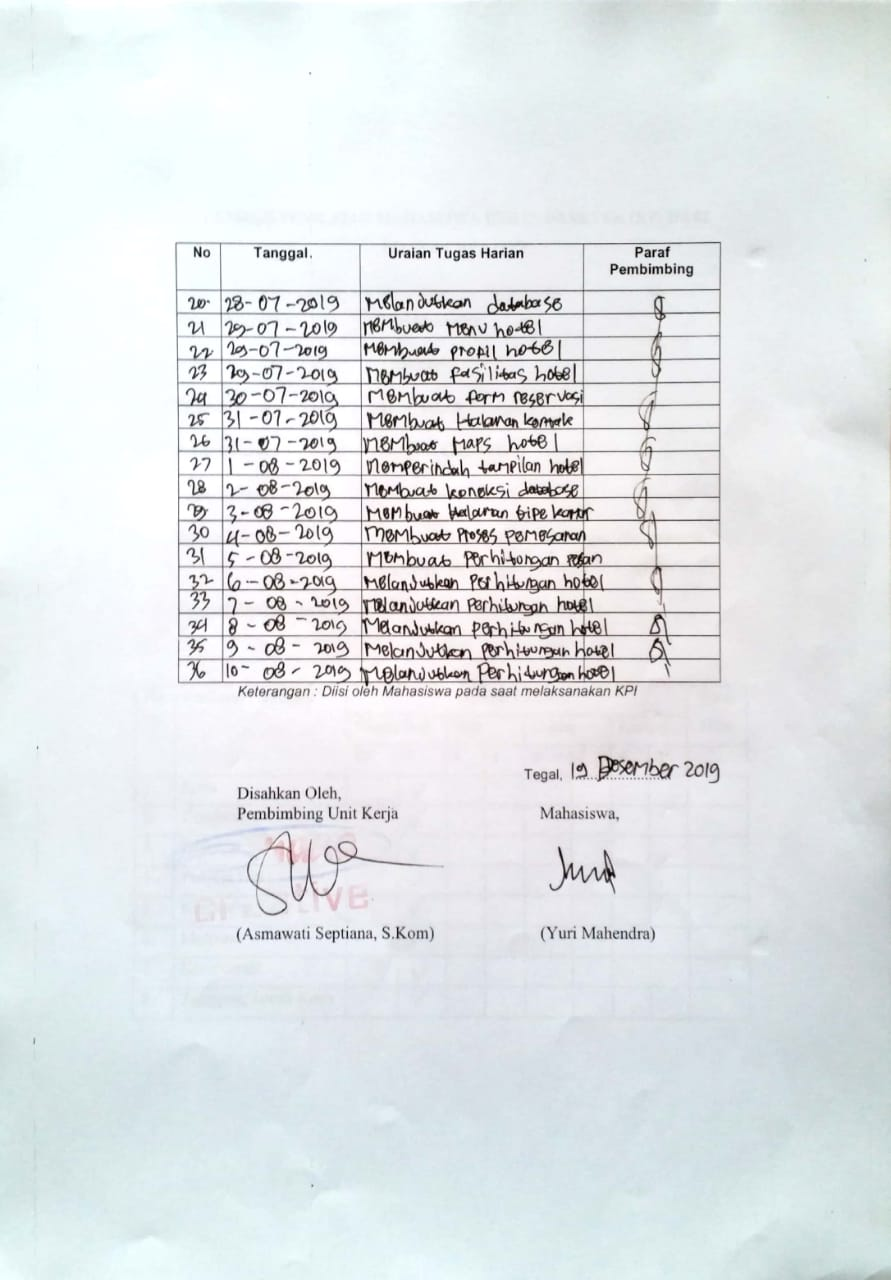 No Tanggal. Uraian Tugas Harian Paraf Pembimbing
20. 28-07-2019 Melanjutkan database
21 29-07-2019 Membuat Menu hotel
22 29-07-2019 Membuat profil hotel
23 29-07-2019 Membuat fasilitas hotel
24 30-07-2019 Membuat form reservasi
25 31-07-2019 Membuat Halaman kontak
26 31-07-2019 Membuat Maps hotel
27 1-08-2019 Memperindah tampilan hotel
28 2-08-2019 Membuat koneksi database
29 3-08-2019 Membuat Halaman tipe kamar
30 4-08-2019 Membuat Proses pemesanan
31 5-08-2019 Membuat Perhitungan pesan
32 6-08-2019 Melanjutkan Perhitungan hotel
33 7-08-2019 Melanjutkan Perhitungan hotel
34 8-08-2019 Melanjutkan Perhitungan hotel
35 9-08-2019 Melanjutkan Perhitungan hotel
36 10-08-2019 Melanjutkan Perhitungan hotel
Keterangan : Diisi oleh Mahasiswa pada saat melaksanakan KPI
Tegal, 19 Desember 2019
Disahkan Oleh,
Pembimbing Unit Kerja Mahasiswa,
(Asmawati Septiana, S.Kom) (Yuri Mahendra)